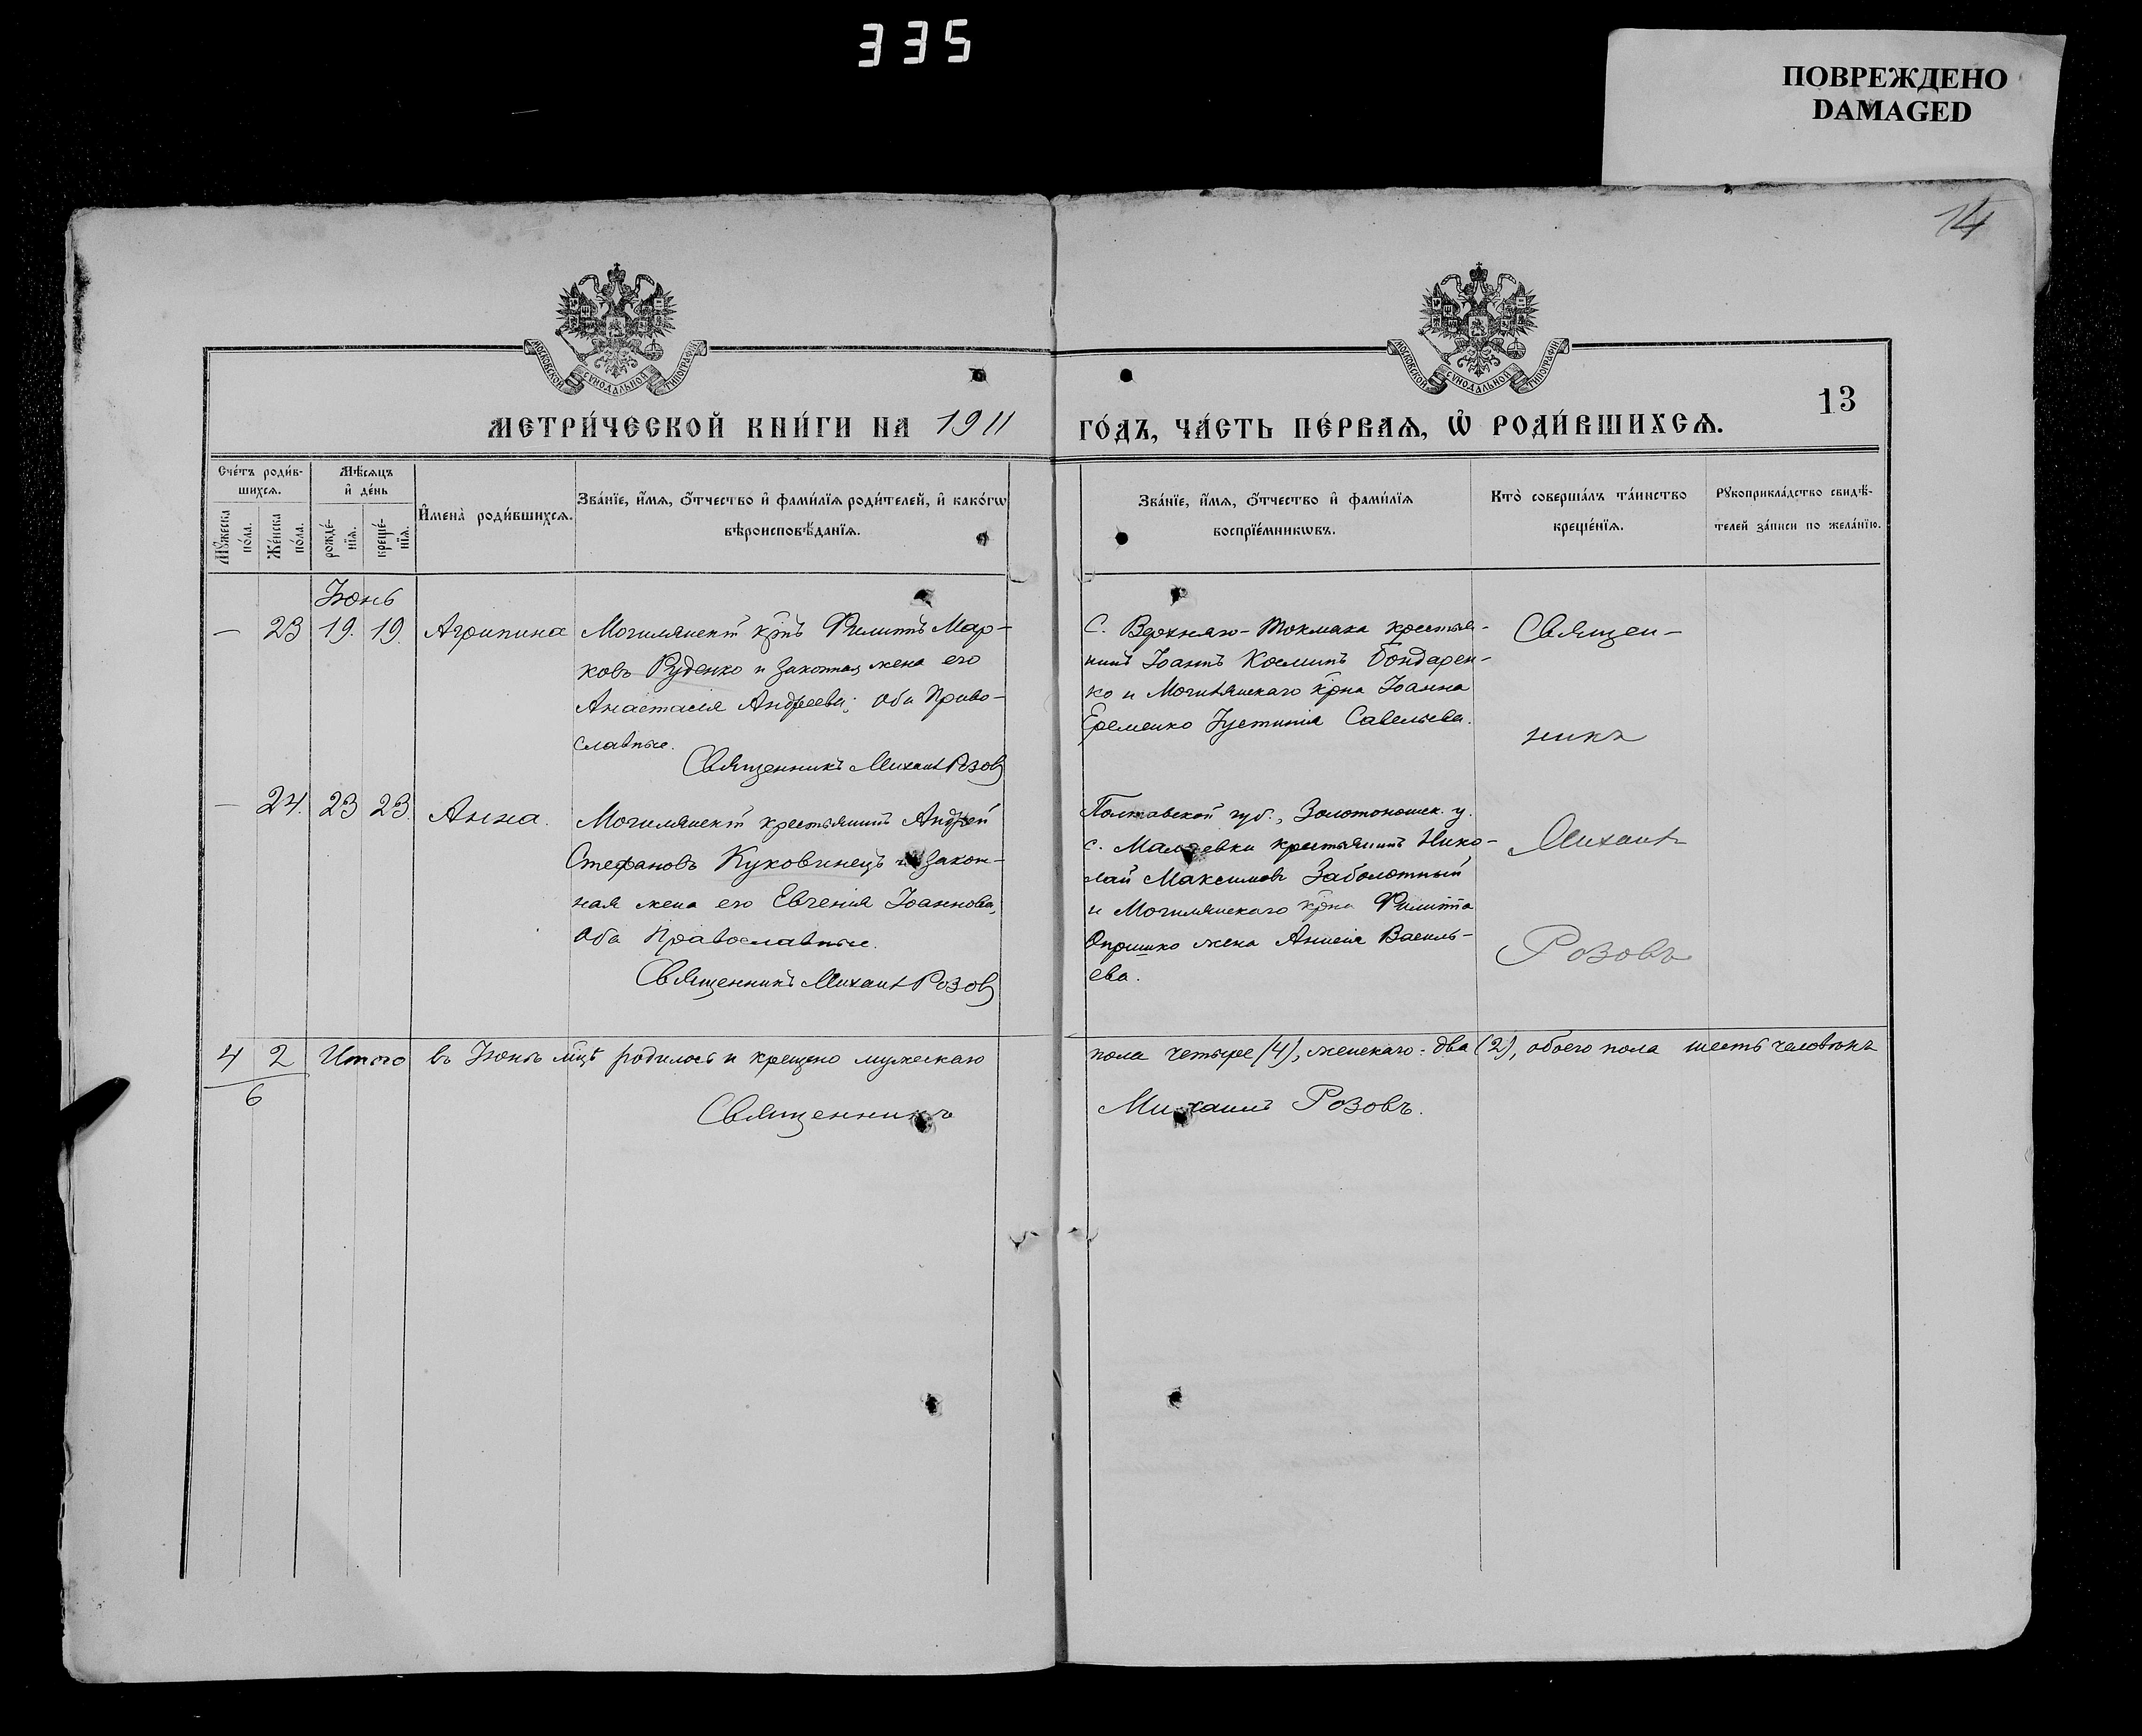 335
ПОВРЕЖДЕНО
DAMAGED
14
МОСКОВСКОЙ СУНОДАЛЬНОЙ ТИПОГРАФІИ
МОСКОВСКОЙ СУНОДАЛЬНОЙ ТИПОГРАФІИ
13
МЕТРИ́ЧЕСКОЙ КНИ́ГИ НА 1911 ГО́ДЪ, ЧА́СТЬ ПЕ́РВАѦ, Ѡ҆ РОДИ́ВШИХСѦ.
Сче́тъ роди́в-
шихсѧ.
Мѣ́сѧцъ
и҆ де́нь
Мꙋ́жеска
по́ла.
Же́нска
по́ла.
рожде́-
нїѧ.
креще́-
нїѧ.
И҆мена̀ роди́вшихсѧ.
Зва́нїе, и҆́мѧ, ѻ҆́тчество и҆ фами́лїѧ роди́телей, и҆ како́гѡ
вѣроисповѣ́данїѧ.
Зва́нїе, и҆́мѧ, ѻ҆́тчество и҆ фами́лїѧ
воспрїе́мникѡвъ.
Кто̀ соверша́лъ та́инство
креще́нїѧ.
Рꙋкоприкла́дство свидѣ́-
телей за́писи по жела́нїю.
Іюнь
— 23 19. 19. Агрипина
Могилянскій кр̃нъ Филиппъ Мар-
ковъ Руденко и законная жена его
Анастасія Андреева; оба Право-
славные.
Священникъ Михаилъ Розовъ
С. Верхняго-Токмака крестья-
нинъ Іоаннъ Косминъ Бондарен-
ко и Могилянскаго кр̃на Іоанна
Еременко Іустинія Савельева.
Священ-
никъ
— 24. 23 23. Анна.
Могилянскій крестьянинъ Андрей
Стефановъ Куковинецъ и закон-
ная жена его Евгенія Іоаннова,
оба Православные.
Священникъ Михаилъ Розовъ
Полтавской губ., Золотоношск. у.
с. крестьянинъ Нико-
лай Максимовъ Заболотный
и Могилянскаго кр̃на Филиппа
Опришко жена Анисія Василь-
ева.
Михаилъ
Розовъ
4 2 Итого въ Іюнѣ мцѣ родилось и крещено мужескаго пола четыре (4), женскаго: два (2), обоего пола шесть человѣкъ
6
Священникъ Михаилъ Розовъ.